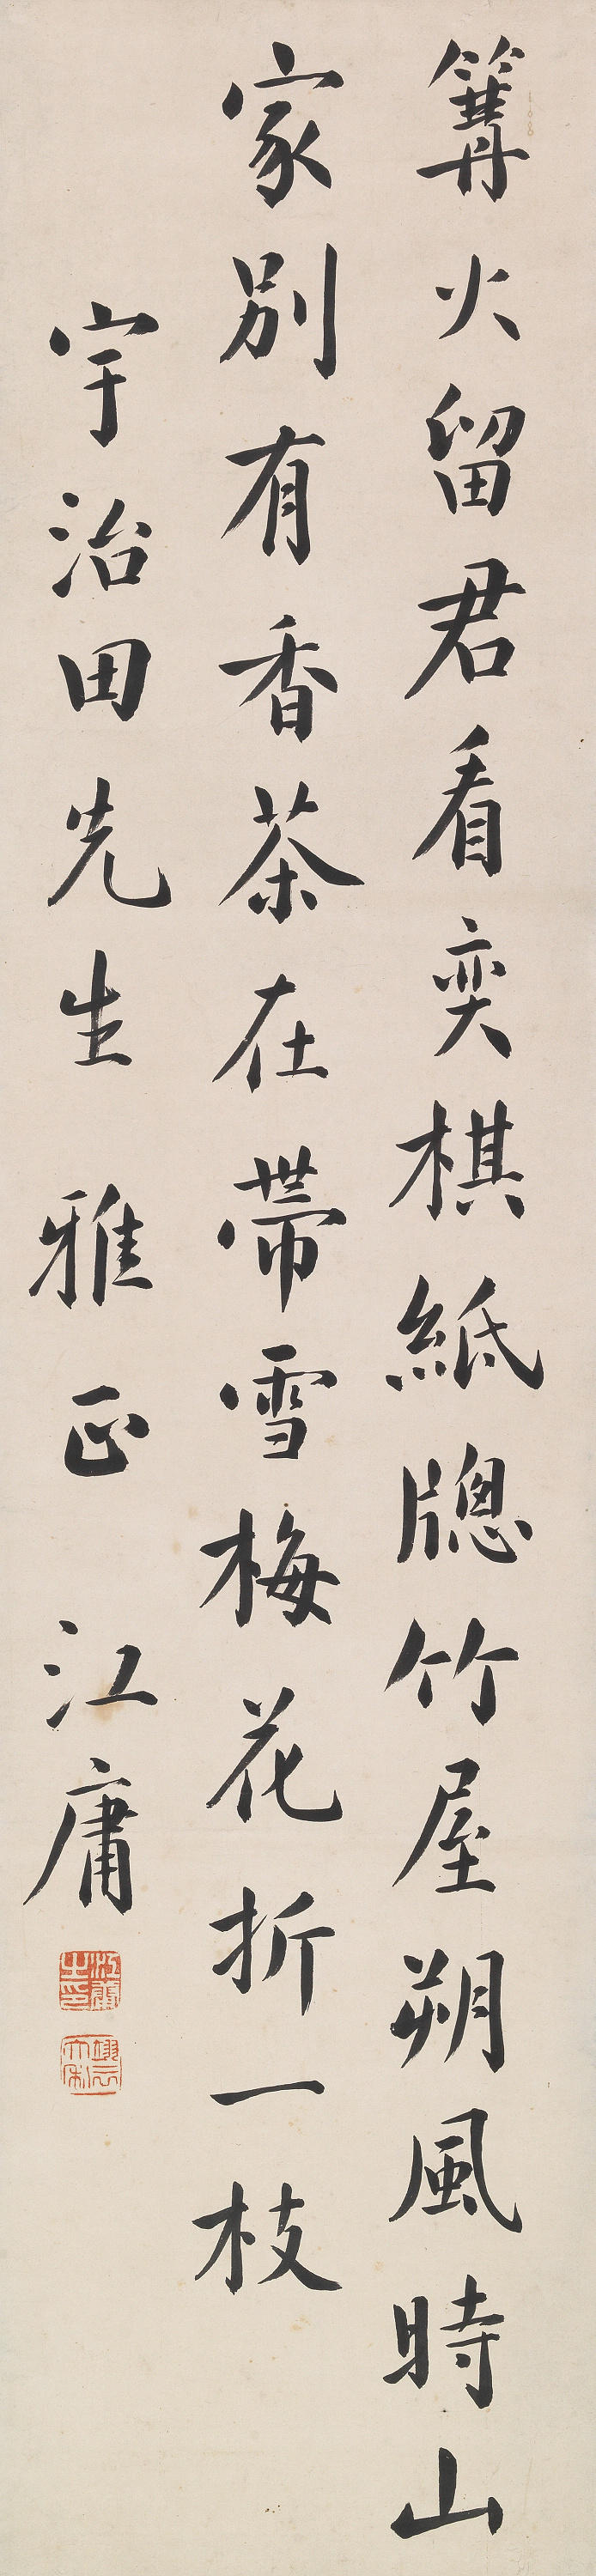 篝火留君看奕棋紙牕竹屋朔風時山
家別有香茶在帶雪梅花折一枝
宇治田先生　雅正　江庸
江庸之印